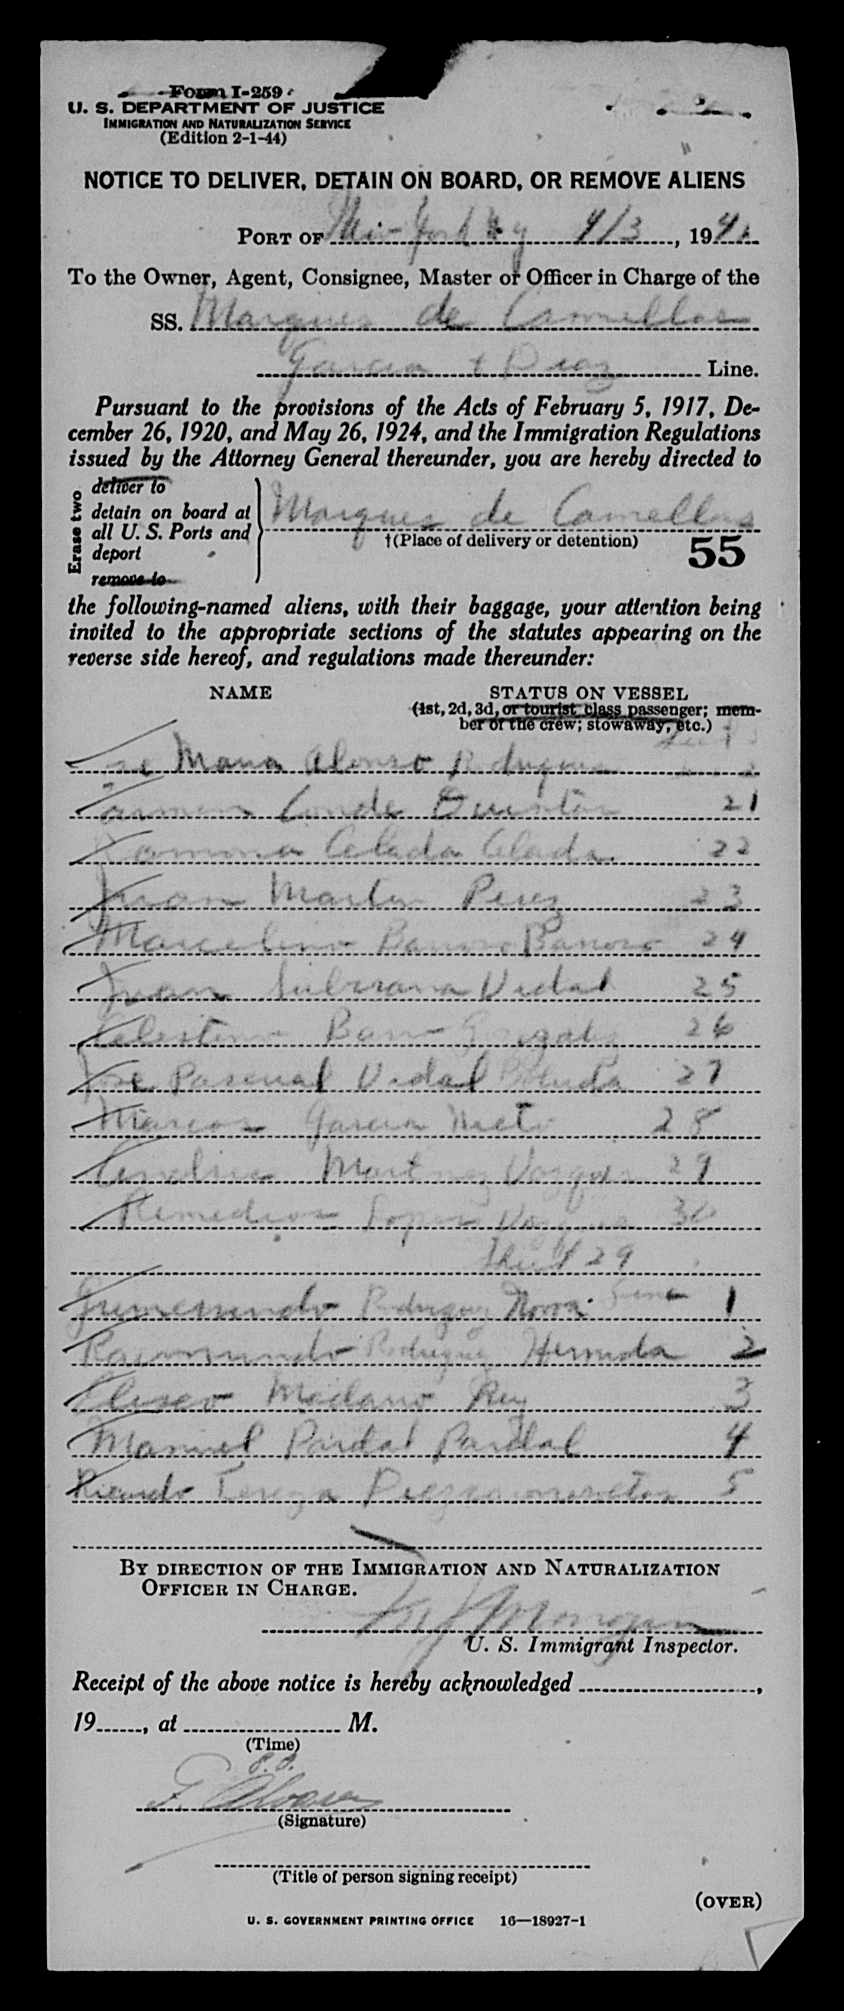 Form I-259
U. S. DEPARTMENT OF JUSTICE
IMMIGRATION AND NATURALIZATION SERVICE
(Edition 2-1-44)
NOTICE TO DELIVER, DETAIN ON BOARD, OR REMOVE ALIENS
PORT OF New York Ny 4/3, 194
To the Owner, Agent, Consignee, Master or Officer in Charge of the
SS. Marques de Comellas
Garcia & Diaz Line.
Pursuant to the provisions of the Acts of February 5, 1917, De-
cember 26, 1920, and May 26, 1924, and the Immigration Regulations
issued by the Attorney General thereunder, you are hereby directed to
Erase two
deliver to
detain on board at
all U. S. Ports and
deport
remove to
Marques de Comellas
†(Place of delivery or detention)
55
the following-named aliens, with their baggage, your attention being
invited to the appropriate sections of the statutes appearing on the
reverse side hereof, and regulations made thereunder:
NAME STATUS ON VESSEL
(1st, 2d, 3d, or tourist class passenger; mem-
ber of the crew; stowaway, etc.)
Jose Maria Alonso Rodriguez
Carmen Conde Quintas 21
Ramona Celada Celada 22
Juan Martin Perez 23
Marcelino Barroso Barroso 24
Juan Subirana Vidal 25
Celestino Gonzalez 26
Jose Pascual Vidal 27
Marcos Garcia Nieto 28
Martinez Vazquez 29
Remedios Lopez 30
29
Gumersindo Rodriguez Novoa 1
Raimundo Rodriguez Hermida 2
Eliseo Rey 3
Manuel Pardal Pardal 4
Ricardo 5
BY DIRECTION OF THE IMMIGRATION AND NATURALIZATION
OFFICER IN CHARGE.
Morgan
U. S. Immigrant Inspector.
Receipt of the above notice is hereby acknowledged ,
19 , at M.
(Time)
F. Alvarez
(Signature)
(Title of person signing receipt)
(OVER)
U. S. GOVERNMENT PRINTING OFFICE 16—18927-1